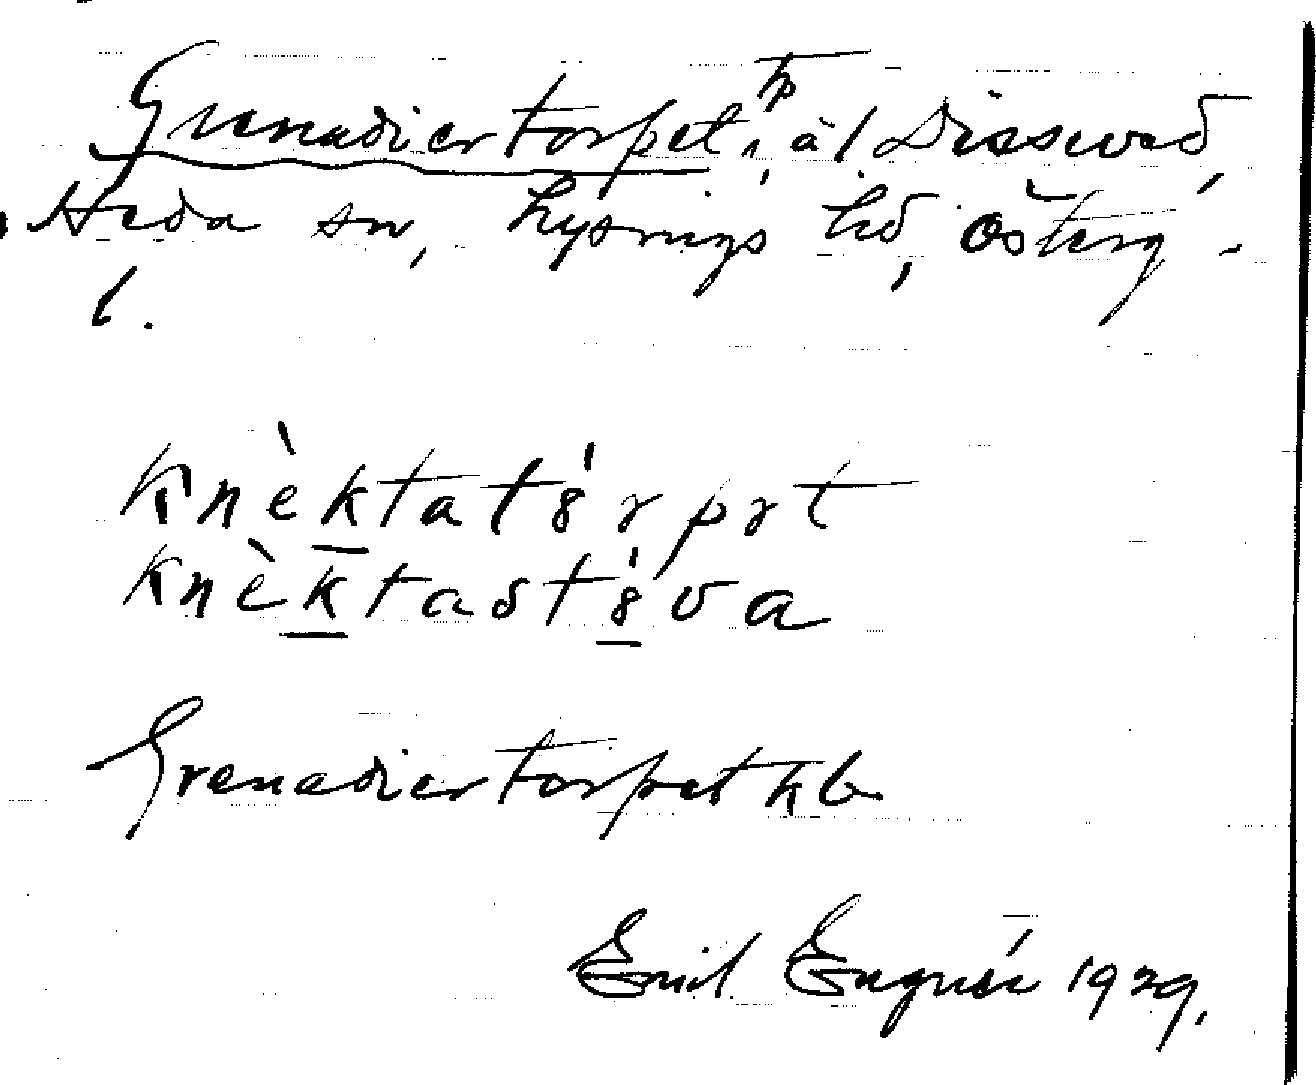 Grenadiertorpet, tp, äl Disevad,
Heda sn, Lysings hd, Österg.
l.
knèktatȣ́rpɤt
knèktastȣ́va
Grenadiertorpet kb
Emil Engnér 1929.